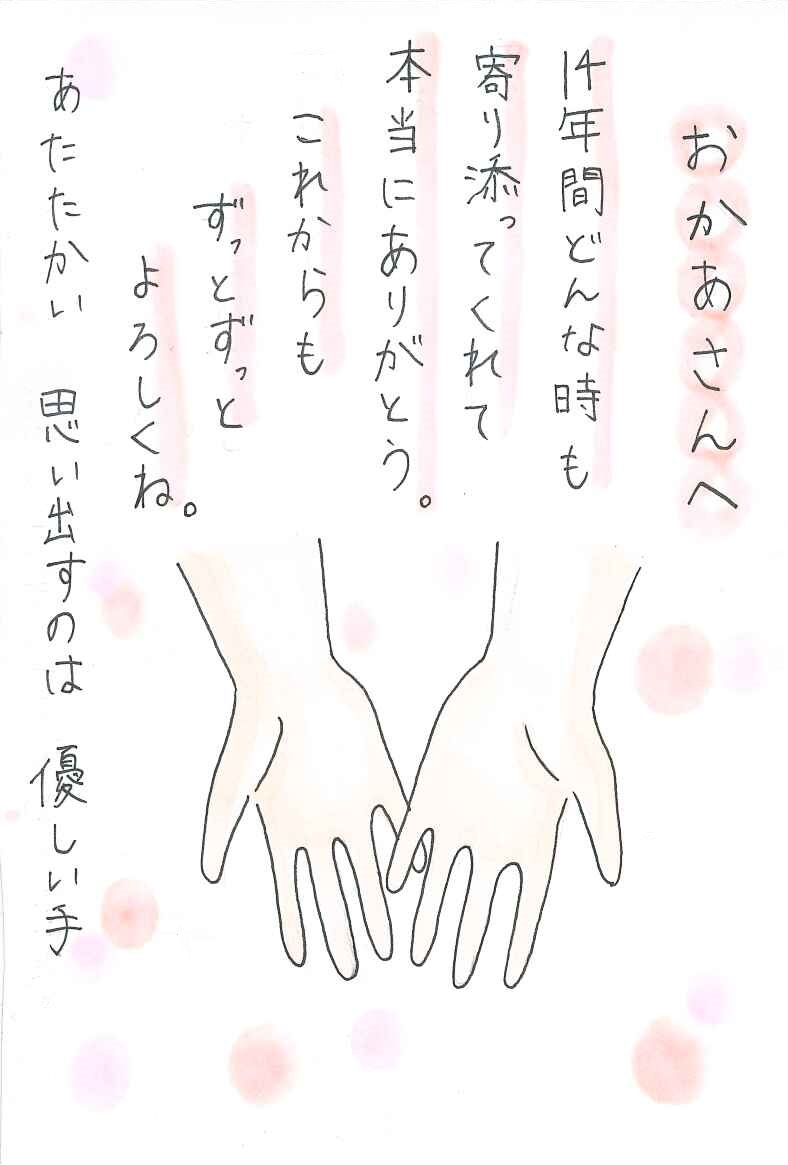 おかあさんへ
14年間どんな時も
寄り添ってくれて
本当にありがとう。
これからも
ずっとずっと
よろしくね。
あたたかい 思い出すのは 優しい手